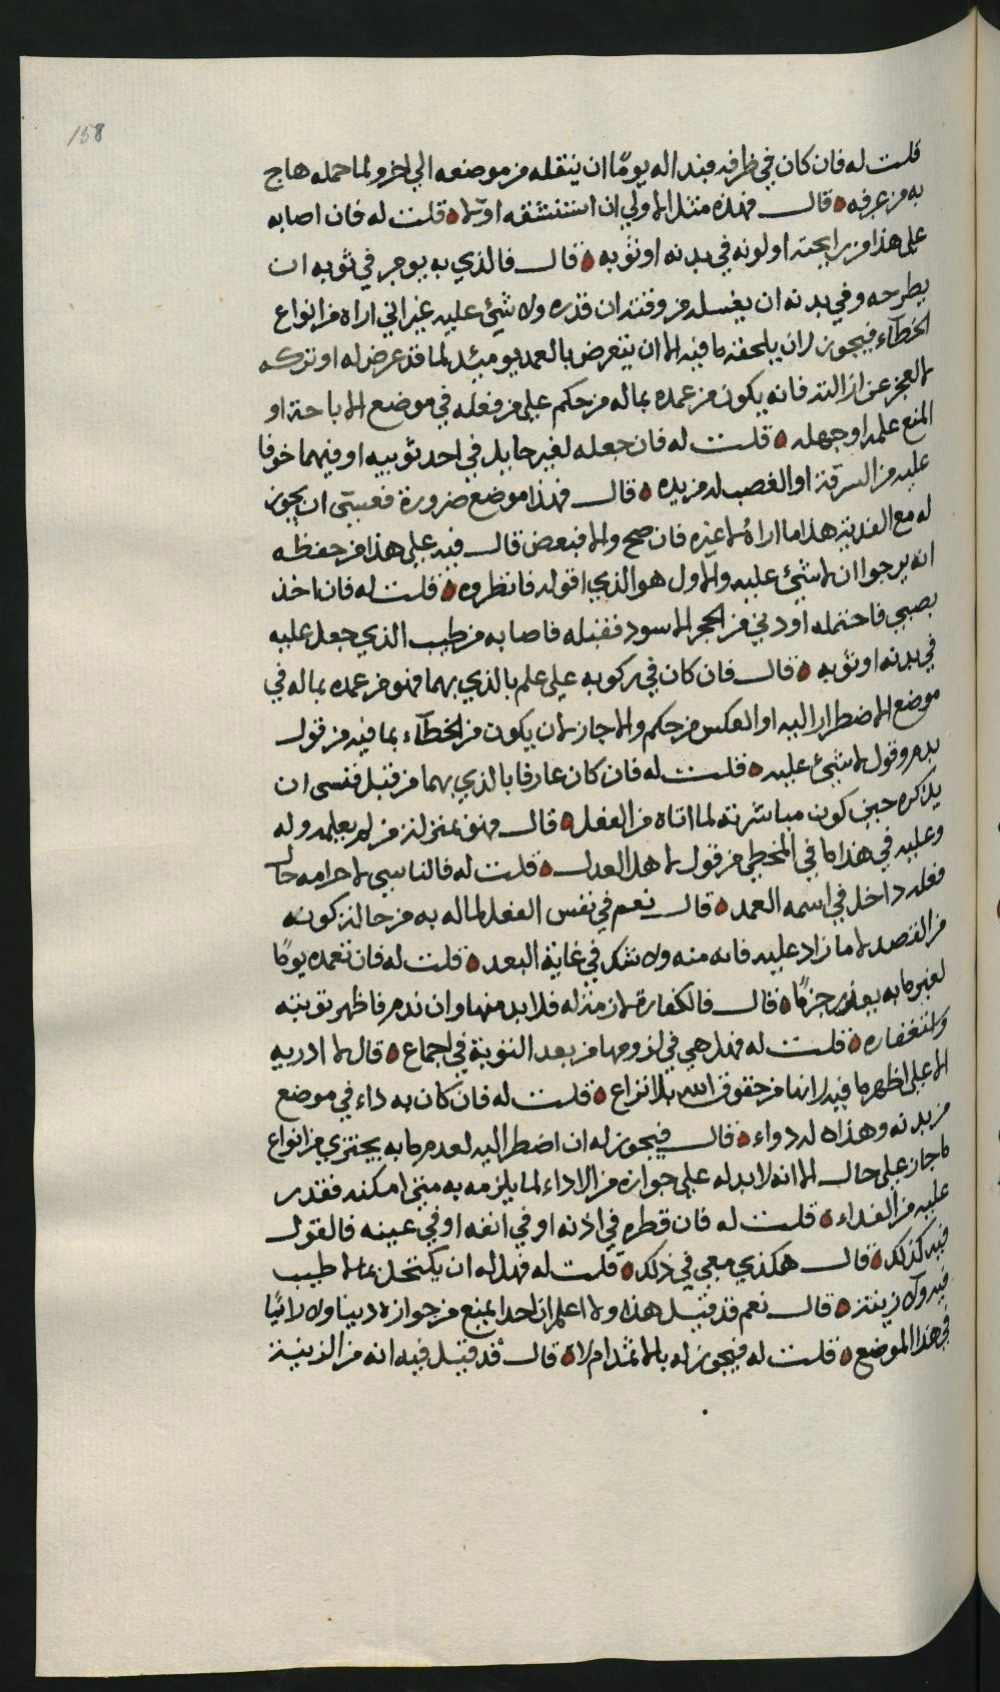 158
قلت له فان كان في ظرافه فبدا له يوما ان ينقله من موضعه الي اخر ولما حمله هاج
به من عرفه قال فهذه مثل الاولي ان استنشقه اولا قلت له فان اصابه
على هذا من رايحته او لونه في بدنه او ثوبه قال فالذي به يومر في ثوبه ان
يطرحه وفي بدنه ان يغسله من وقته ان قدره ولا شيئ عليه غير اني اراه من انواع
الخطآء فيجوز لان يلحقه ما فيه الا ان يتعرض بالعمد يوميئد لما قد عرض له او تركه
لا لعجز عن ازالته فانه يكون من عمده بماله من حكم على من فعله في موضع الاباحة او
المنع علمه او جهله قلت له فان جعله لغير حايل في احد ثوبيه او فيهما خوفا
عليه من السرقة او الغصب له من يده قال فهذا موضع ضرورة فعسى ان يجوز
له مع الفدية هذا ما اراه لا غيره فان صح والا فبعض قال فيه على هذا من حفظه
انه يرجوا ان لا شيئ عليه والاول هو الذي اقوله فانظروه قلت له فان اخذ
بصبي فاحتمله او دني من الحجر الاسود فقبله فاصابه من طيب الذي جعل عليه
في بدنه او ثوبه قال فان كان في ركوبه على علم بالذي بهما فهو من عمده بماله في
موضع الاضطرار اليه او العكس من حكم والا جاز لان يكون من الخطآء بما فيه من قول
بدم وقول لا شيئ عليه قلت له فان كان عارفا بالذي بهما من قبل فنسى ان
يذكره حين كون مباشرته لما اتاه من الفعل قال فهو بمنزلة من لم يعلمه وله
وعليه في هذا ما في المخطي من قول لاهل العدل قلت له فالناسي لاحرامه حال
فعله داخل في اسمه العمد قال نعم في نفس الفعل لماله به من حالة كونه
من القصد لا ما زاد عليه فانه منه ولا شك في غاية البعد قلت له فان تعمده يوما
لغير ما به يعذر جزما قال فالكفارة لازمة له فلا بد منها وان ندم فاظهر توبته
واستغفاره قلت له فهل هي في لزومها من بعد التوبة في اجماع قال لا ادريه
الا على اظهر ما فيه لانها من حقوق الله بلا نزاع قلت له فان كان به داء في موضع
من بدنه وهذا له دواء قال فيجوز له ان اضطر اليه لعدم ما به يجتزي من انواع
ما جاز على حال الا انه لا بد له على جوازه من الاداء لما يلزمه به متى امكنه فقدر
عليه من الفداء قلت له فان قطره في اذنه او في انفه او في عينه فالقول
فيه كذلك قال هكذي معي في ذلك قلت له فهل له ان يكتحل بما لا طيب
فيه ولا زينة قال نعم قد قيل هذا ولا اعلم ان احدا يمنع من جوازه دينا ولا رائيا
في هذا الموضع قلت له فيجوز له بالاثمد ام لا قال قد قيل فيه انه من الزينة